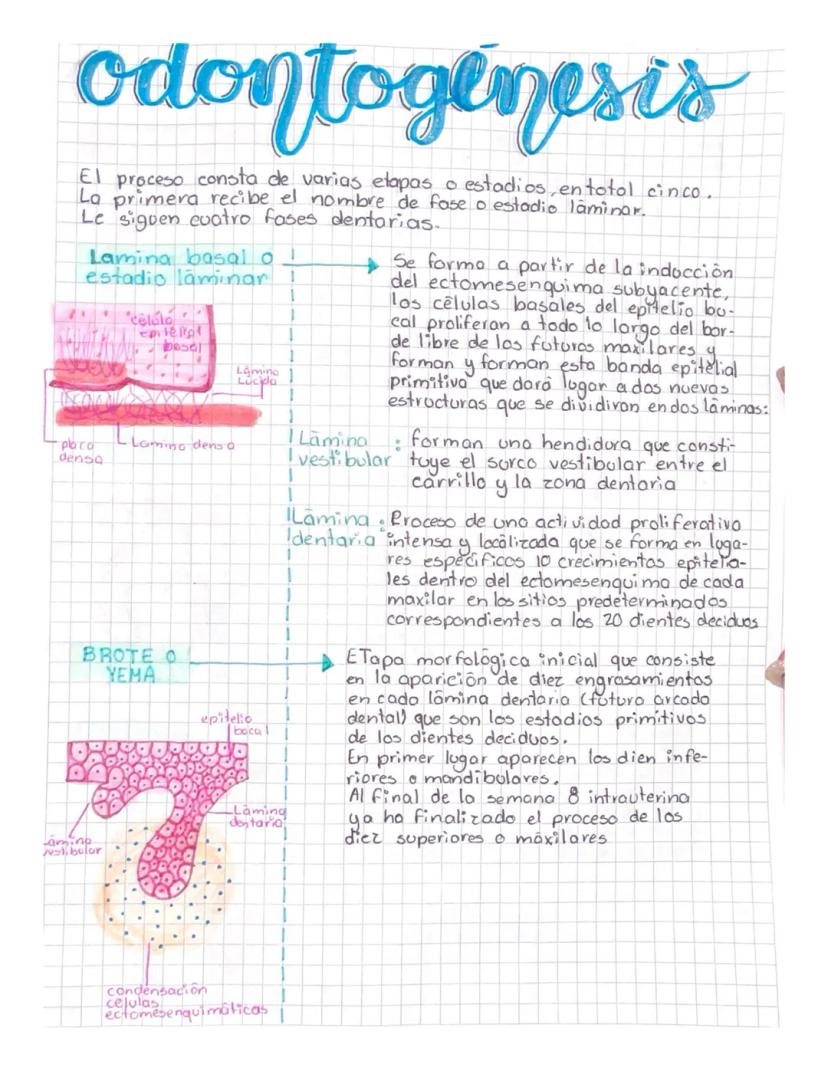 odontogénesis
El proceso consta de varias etapas o estadios, en total cinco.
La primera recibe el nombre de fase o estadio láminar.
Le siguen cuatro fases dentarias.
Lamina basal o
estadio láminar
Se forma a partir de la inducción
del ectomesenquima subyacente,
los células basales del epitelio bu-
cal proliferan a todo lo largo del bor-
de libre de los futuros maxilares y
forman y forman esta banda epitelial
primitiva que dará lugar a dos nuevas
estructuras que se dividiran en dos láminas:
célula
epitelial
basal
Lámina
Lúcida
placa
densa
Lamina densa
Lámina
vestibular
: forman una hendidura que consti-
tuye el surco vestibular entre el
carrillo y la zona dentaria
Lámina
dentaria
: Proceso de una actividad proliferativa
intensa y localizada que se forma en luga-
res específicos 10 crecimientos epitelia-
les dentro del ectomesenquima de cada
maxilar en los sitios predeterminados
correspondientes a los 20 dientes deciduos
BROTE O
YEMA
ETapa morfológica inicial que consiste
en la aparición de diez engrosamientos
en cada lámina dentaria (futuro arcada
dental) que son los estadios primitivos
de los dientes deciduos.
En primer lugar aparecen los dien infe-
riores o mandibulares.
Al final de la semana 8 intrauterina
ya ha finalizado el proceso de los
diez superiores o máxilares
epitelio
bucal
Lámina
dentaria
lámina
vestibular
condensación
celulas
ectomesenquimáticas